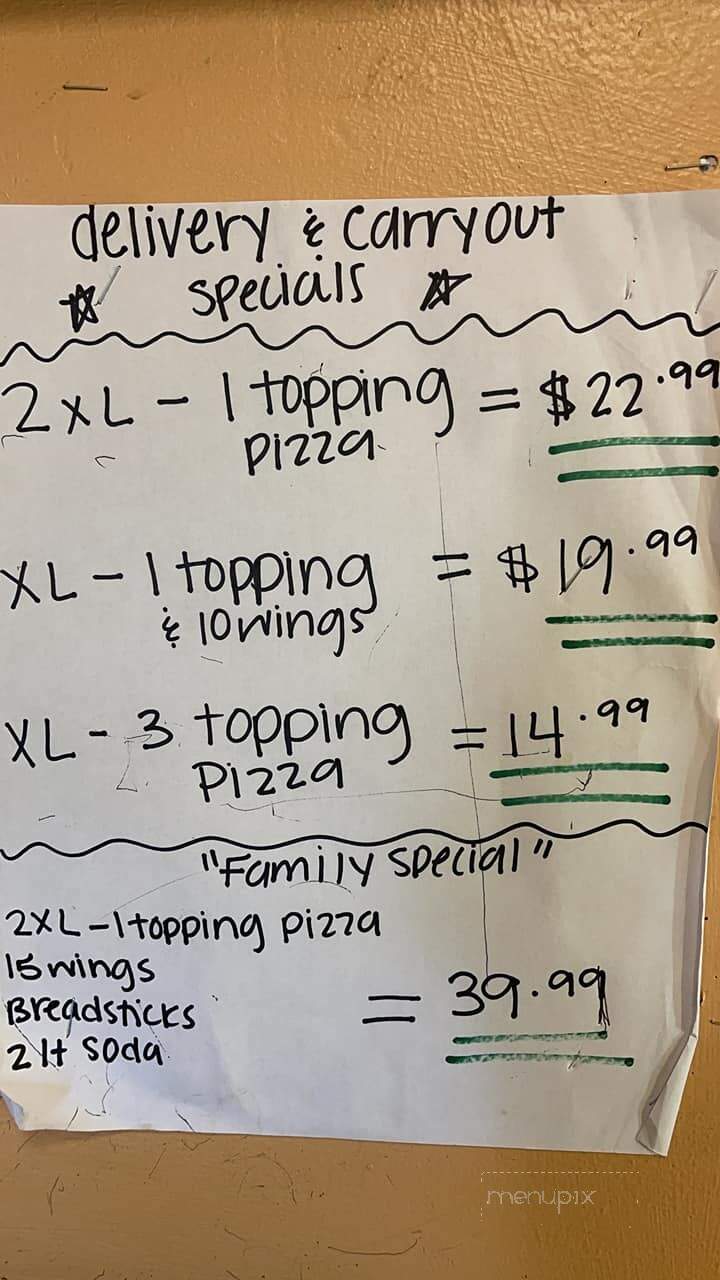 delivery & carryout
specials
2XL - 1 topping = $22.99
pizza
XL - 1 topping = $19.99
& 10 wings
XL - 3 topping = 14.99
Pizza
"Family Special"
2XL - 1 topping pizza
15 wings
Breadsticks = 39.99
2 lt soda
menupix